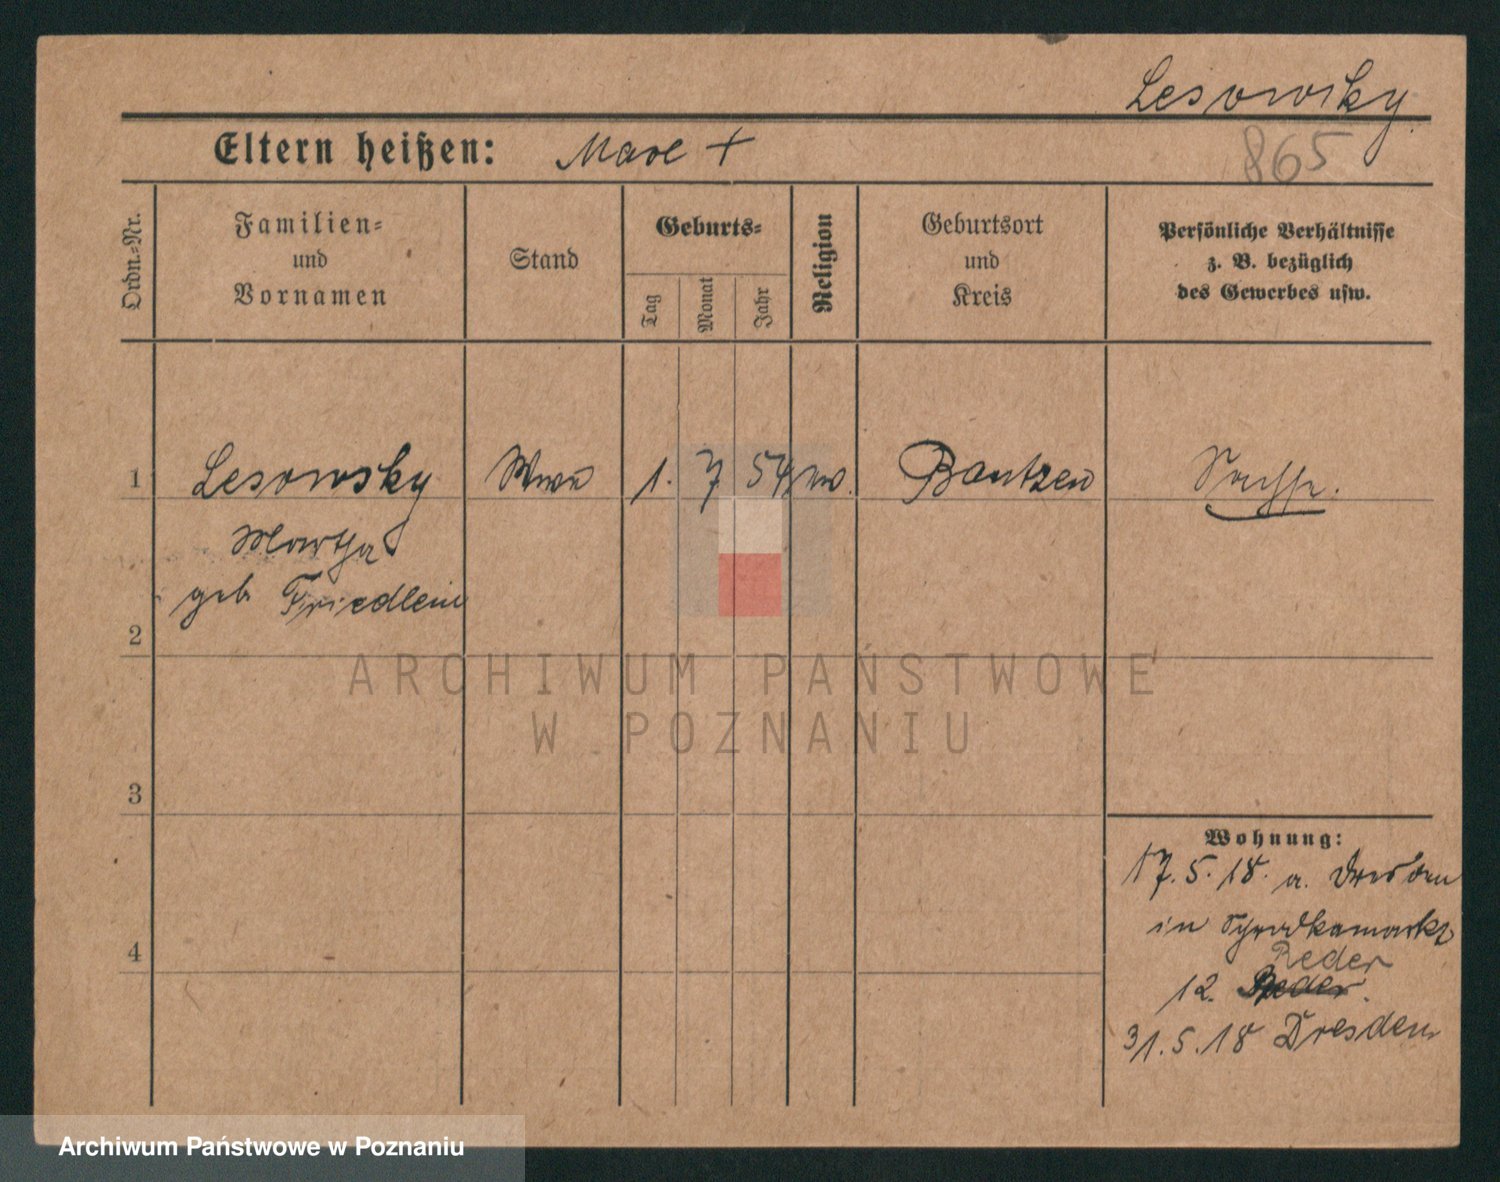 Lesowsky
865
Eltern heißen: Max +
Ordn.-Nr.
Familien- und Vornamen
Stand
Geburts-
Tag
Monat
Jahr
Religion
Geburtsort und Kreis
Persönliche Verhältnisse z. B. bezüglich des Gewerbes usw.
1 Lesowsky Wwe 1. 7 54 ev. Bautzen Sachse.
Martha
geb. Friedlein
2
3
4
Wohnung:
17.5.18. a. Dresden
in Schrodkamarkt
Reder
12. Reder.
31.5.18 Dresden
ARCHIWUM PAŃSTWOWE
W POZNANIU
Archiwum Państwowe w Poznaniu